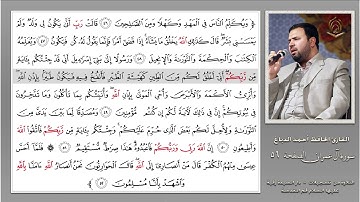 وَيُكَلِّمُ النَّاسَ فِي الْمَهْدِ وَكَهْلًا وَمِنَ الصَّالِحِينَ ٤٦ قَالَتْ رَبِّ أَنَّىٰ يَكُونُ لِي وَلَدٌ وَلَمْ
يَمْسَسْنِي بَشَرٌ قَالَ كَذَٰلِكِ اللَّهُ يَخْلُقُ مَا يَشَاءُ إِذَا قَضَىٰ أَمْرًا فَإِنَّمَا يَقُولُ لَهُ كُن فَيَكُونُ ٤٧ وَيُعَلِّمُهُ
الْكِتَابَ وَالْحِكْمَةَ وَالتَّوْرَاةَ وَالْإِنجِيلَ ٤٨ وَرَسُولًا إِلَىٰ بَنِي إِسْرَائِيلَ أَنِّي قَدْ جِئْتُكُم بِآيَةٍ
مِّن رَّبِّكُمْ أَنِّي أَخْلُقُ لَكُم مِّنَ الطِّينِ كَهَيْئَةِ الطَّيْرِ فَأَنفُخُ فِيهِ فَيَكُونُ طَيْرًا بِإِذْنِ اللَّهِ
وَأُبْرِئُ الْأَكْمَهَ وَالْأَبْرَصَ وَأُحْيِي الْمَوْتَىٰ بِإِذْنِ اللَّهِ وَأُنَبِّئُكُم بِمَا تَأْكُلُونَ وَمَا تَدَّخِرُونَ
فِي بُيُوتِكُمْ إِنَّ فِي ذَٰلِكَ لَآيَةً لَّكُمْ إِن كُنتُم مُّؤْمِنِينَ ٤٩ وَمُصَدِّقًا لِّمَا بَيْنَ يَدَيَّ مِنَ
التَّوْرَاةِ وَلِأُحِلَّ لَكُم بَعْضَ الَّذِي حُرِّمَ عَلَيْكُمْ وَجِئْتُكُم بِآيَةٍ مِّن رَّبِّكُمْ فَاتَّقُوا اللَّهَ
وَأَطِيعُونِ ٥٠ إِنَّ اللَّهَ رَبِّي وَرَبُّكُمْ فَاعْبُدُوهُ هَٰذَا صِرَاطٌ مُّسْتَقِيمٌ ٥١ فَلَمَّا أَحَسَّ
عِيسَىٰ مِنْهُمُ الْكُفْرَ قَالَ مَنْ أَنصَارِي إِلَى اللَّهِ قَالَ الْحَوَارِيُّونَ نَحْنُ أَنصَارُ اللَّهِ آمَنَّا بِاللَّهِ
وَاشْهَدْ بِأَنَّا مُسْلِمُونَ ٥٢
القارئ الحافظ احمد الدباغ
سورة آل عمران الصفحة ٥٦